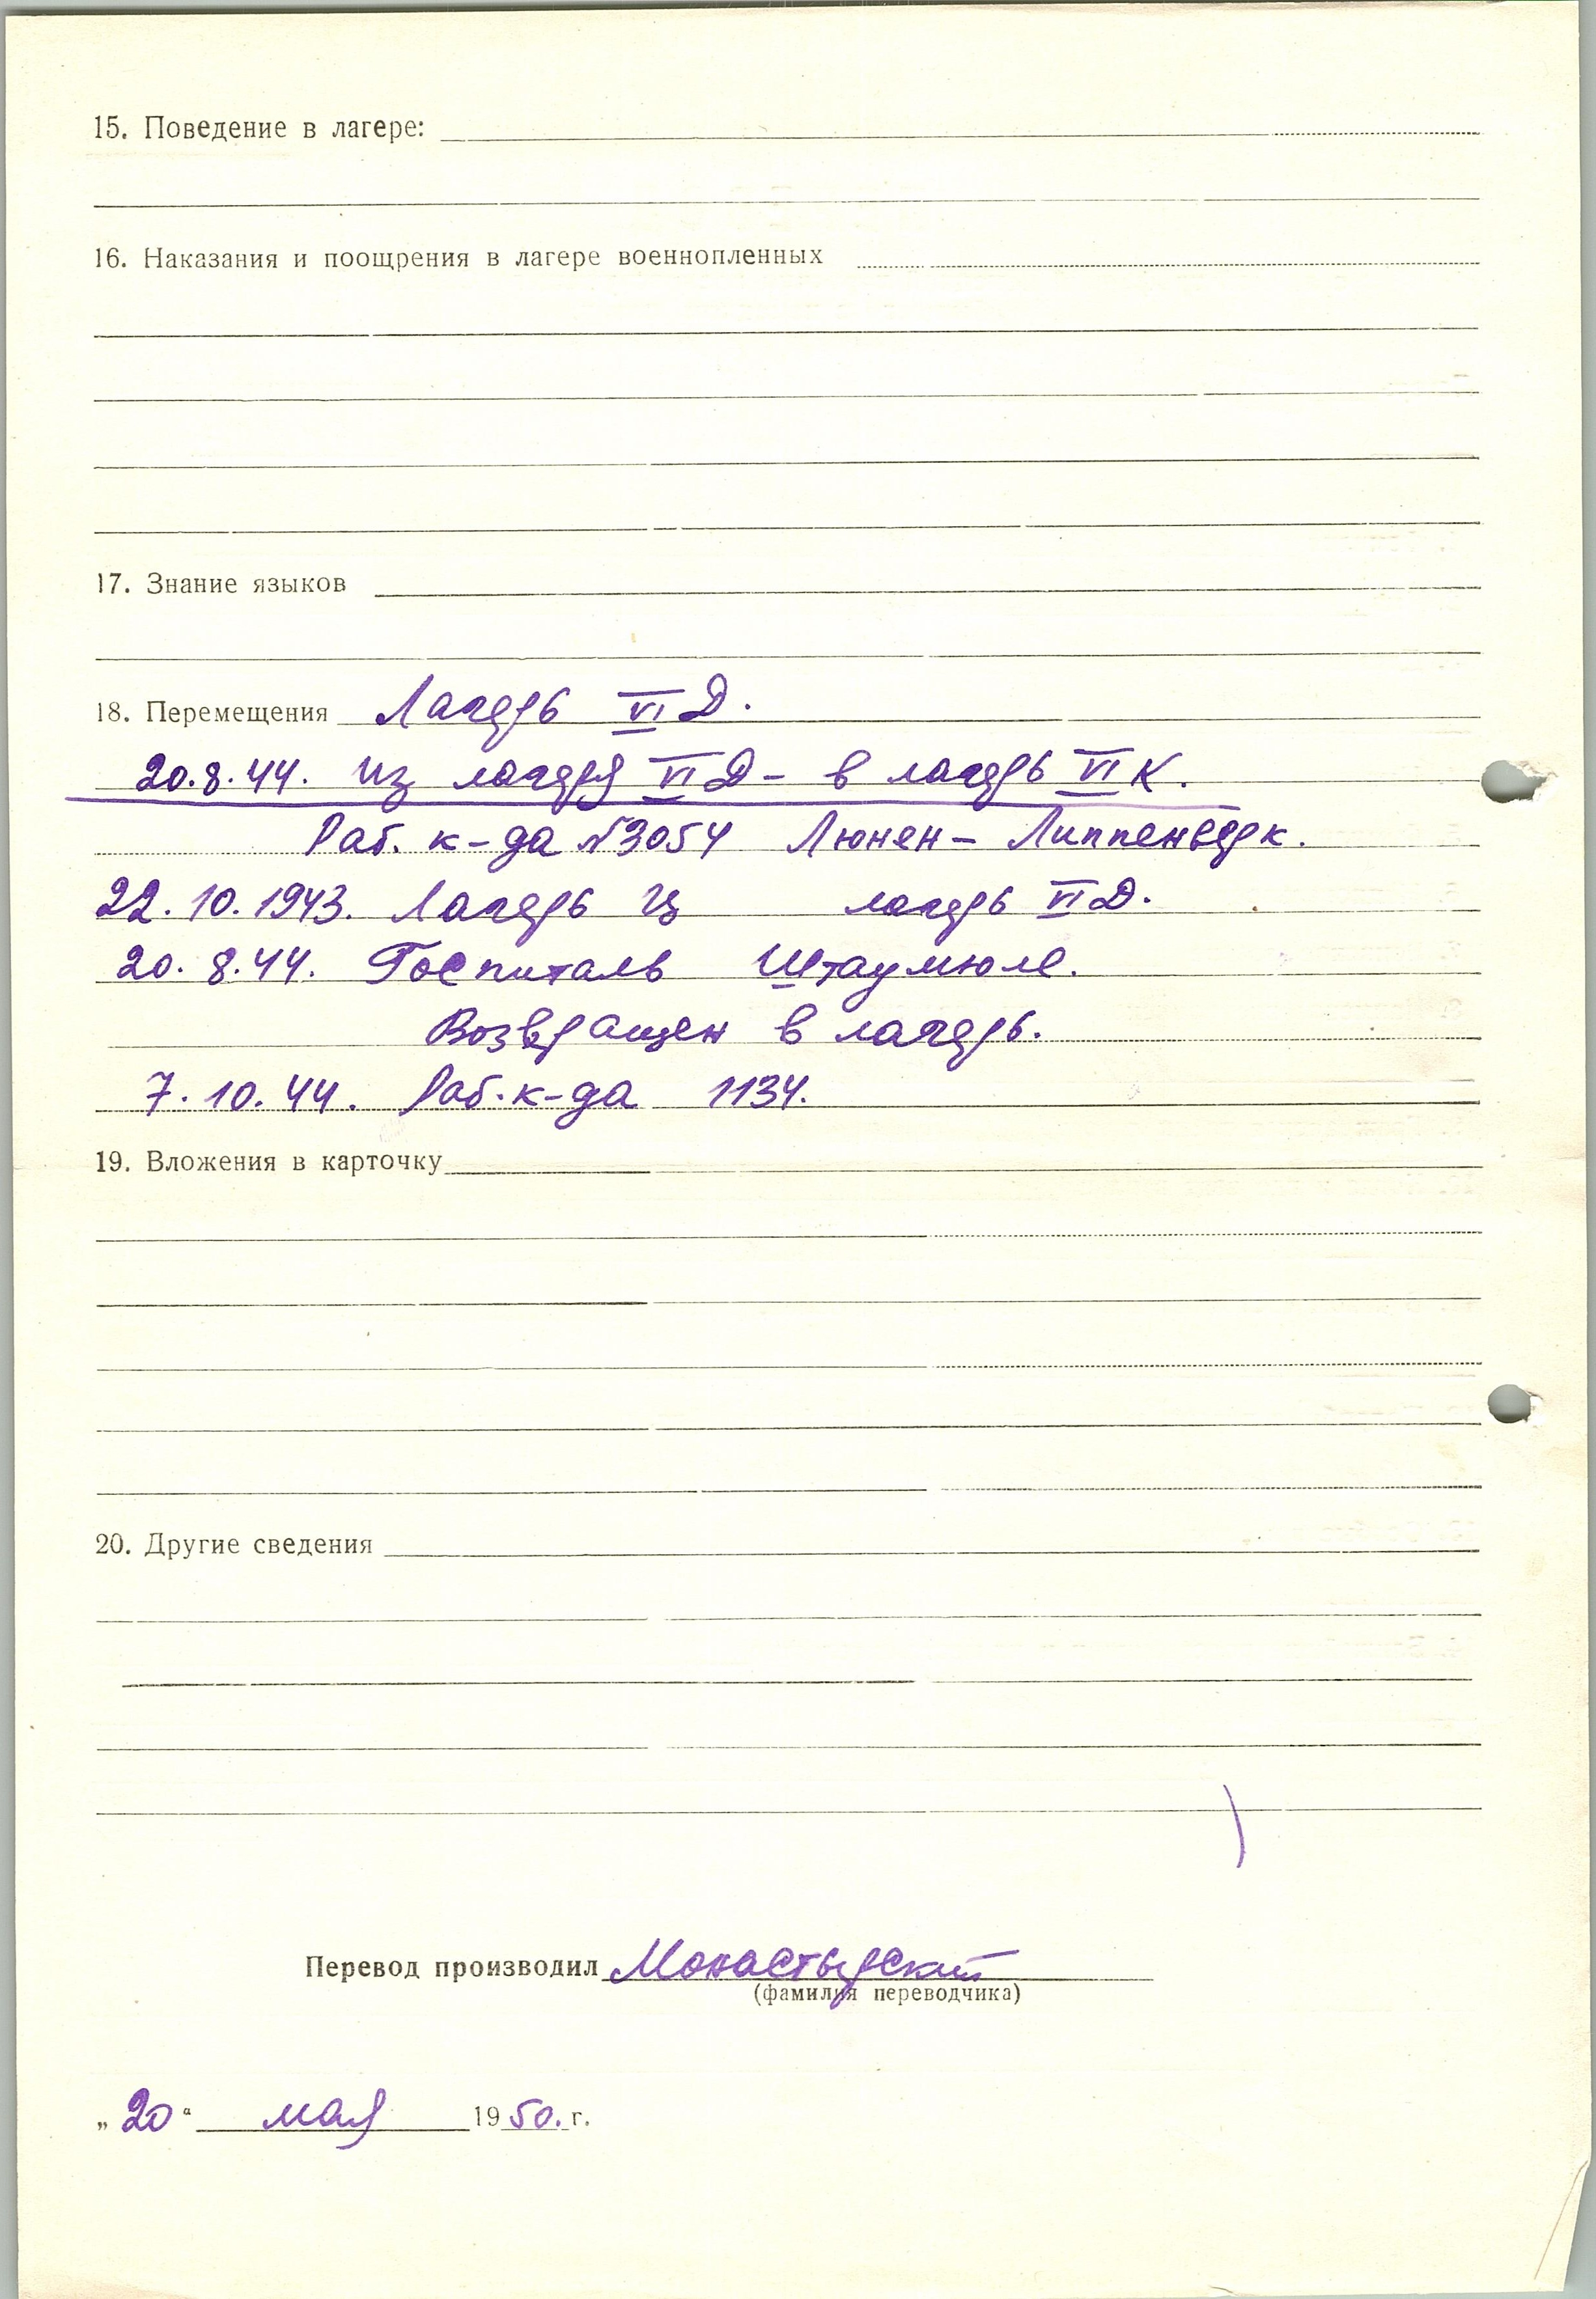 15. Поведение в лагере:
16. Наказания и поощрения в лагере военнопленных
17. Знание языков
18. Перемещения Лагерь VI Д.
20.8.44. из лагеря VI Д – в лагерь VI К.
Раб. к-да №3054 Люнен – Липпенверк.
22.10.1943. Лагерь лагерь VI Д.
20.8.44. Госпиталь Штаумюле.
Возвращен в лагерь.
7.10.44. Раб. к-да 1134.
19. Вложения в карточку
20. Другие сведения
Перевод производил Монастырский
(фамилия переводчика)
„20“ мая 1950. г.